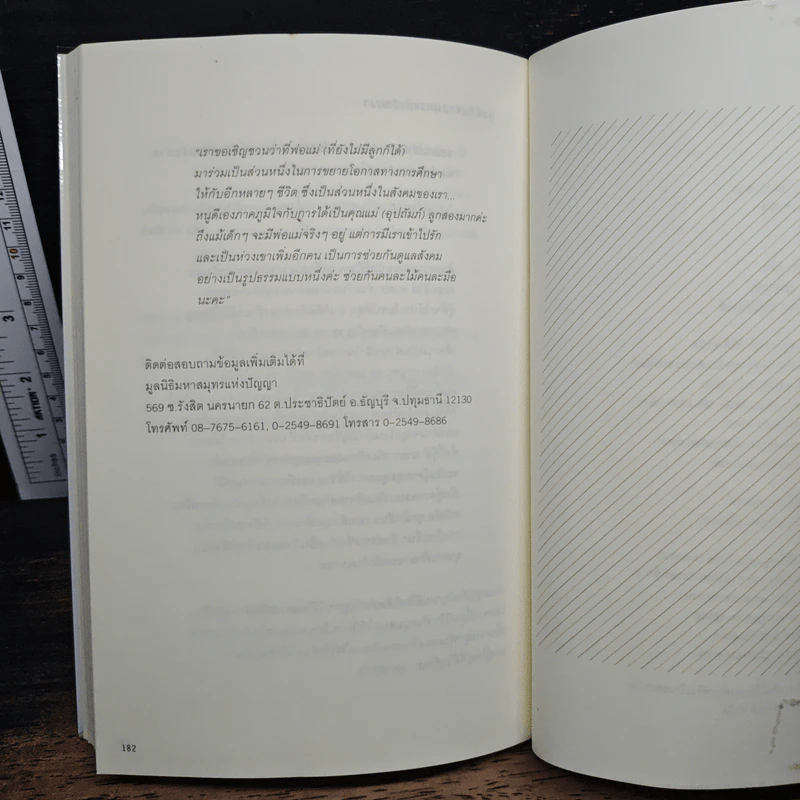 "เราขอเชิญชวนว่าที่พ่อแม่ (ที่ยังไม่มีลูกก็ได้)
มาร่วมเป็นส่วนหนึ่งในการขยายโอกาสทางการศึกษา
ให้กับอีกหลายๆ ชีวิต ซึ่งเป็นส่วนหนึ่งในสังคมของเรา...
หนูดีเองภาคภูมิใจกับการได้เป็นคุณแม่ (อุปถัมภ์) ลูกสองมากค่ะ
ถึงแม้เด็กๆ จะมีพ่อแม่จริงๆ อยู่ แต่การมีเราเข้าไปรัก
และเป็นห่วงเขาเพิ่มอีกคน เป็นการช่วยกันดูแลสังคม
อย่างเป็นรูปธรรมแบบหนึ่งค่ะ ช่วยกันคนละไม้คนละมือ
นะคะ"
ติดต่อสอบถามข้อมูลเพิ่มเติมได้ที่
มูลนิธิมหาสมุทรแห่งปัญญา
569 ซ.รังสิต นครนายก 62 ต.ประชาธิปัตย์ อ.ธัญบุรี จ.ปทุมธานี 12130
โทรศัพท์ 08-7675-6161, 0-2549-8691 โทรสาร 0-2549-8686
182